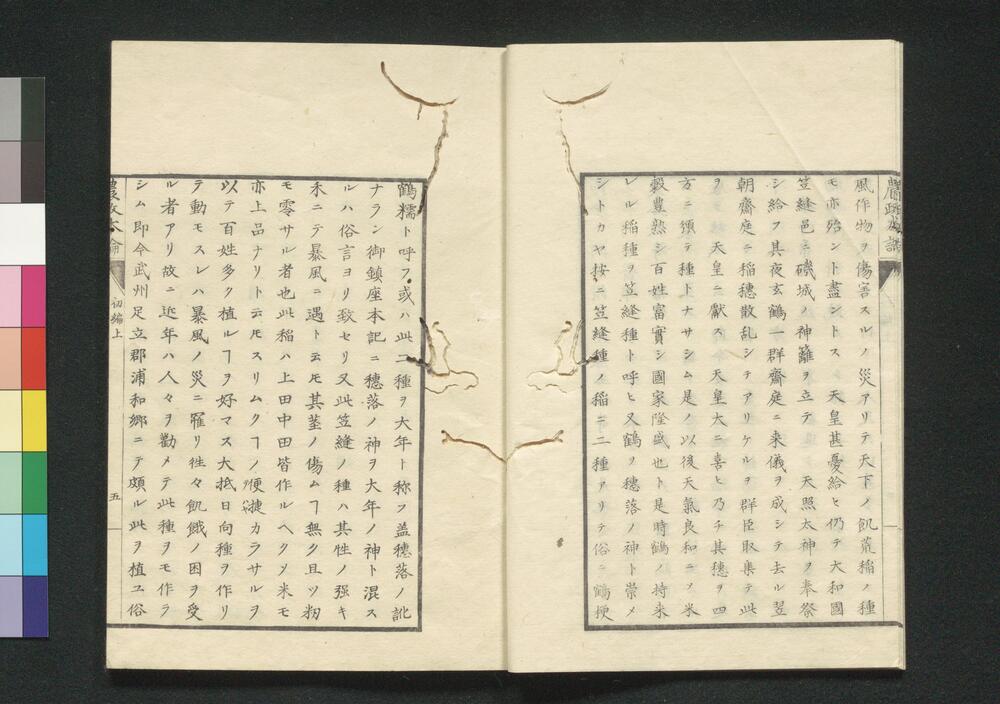 風作物ヲ傷害スルノ災アリテ天下ノ飢荒稲ノ種
モ亦殆ント盡ントス 天皇甚憂給ヒ仍テ大和國
笠縫邑ニ磯城ノ神籬ヲ立テ 天照太神ヲ奉祭
シ給フ其夜玄鶴一群齋庭ニ来儀ヲ成シテ去ル翌
朝齋庭ニ稲穗散乱シテアリケルヲ群臣取集テ此
ヲ 天皇ニ獻ス 天皇大ニ喜ヒ乃チ其穗ヲ四
方ニ頒テ種トナサシム是ノ以後天氣良和ニソ米
穀豊熟シ百姓富實シ國家隆盛也ト是時鶴ノ持来
レル稲種ヲ笠縫種ト呼ヒ又鶴ヲ穗落ノ神ト崇メ
シトカヤ按ニ笠縫種ノ稲ニ二種アリテ俗ニ鶴粳
鶴糯ト呼フ或ハ此二種ヲ大年ト称フ盖穗落ノ訛
ナラン御鎮座本記ニ穗落ノ神ヲ大年ノ神ト混ス
ルハ俗言ヨリ致セリ又此笠縫ノ種ハ其性ノ强キ
禾ニテ暴風ニ遇トモ其莖ノ傷ムヿ無ク且ツ籾
モ零サル者也此稲ハ上田中田皆作ルヘクソ米モ
亦上品ナリト云モスリムクヿノ便捷カラサルヲ
以テ百姓多ク植ルヿヲ好マス大抵日向種ヲ作リ
テ動モスレハ暴風ノ災ニ罹リ徃々飢餓ノ困ヲ受
ル者アリ故ニ近年ハ人々ヲ勸メテ此種ヲモ作ラ
シム即今武州足立郡浦和郷ニテ頗ル此ヲ植ユ俗
農政本論
初編上
五